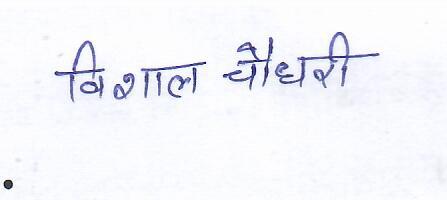 विशाल चौधरी